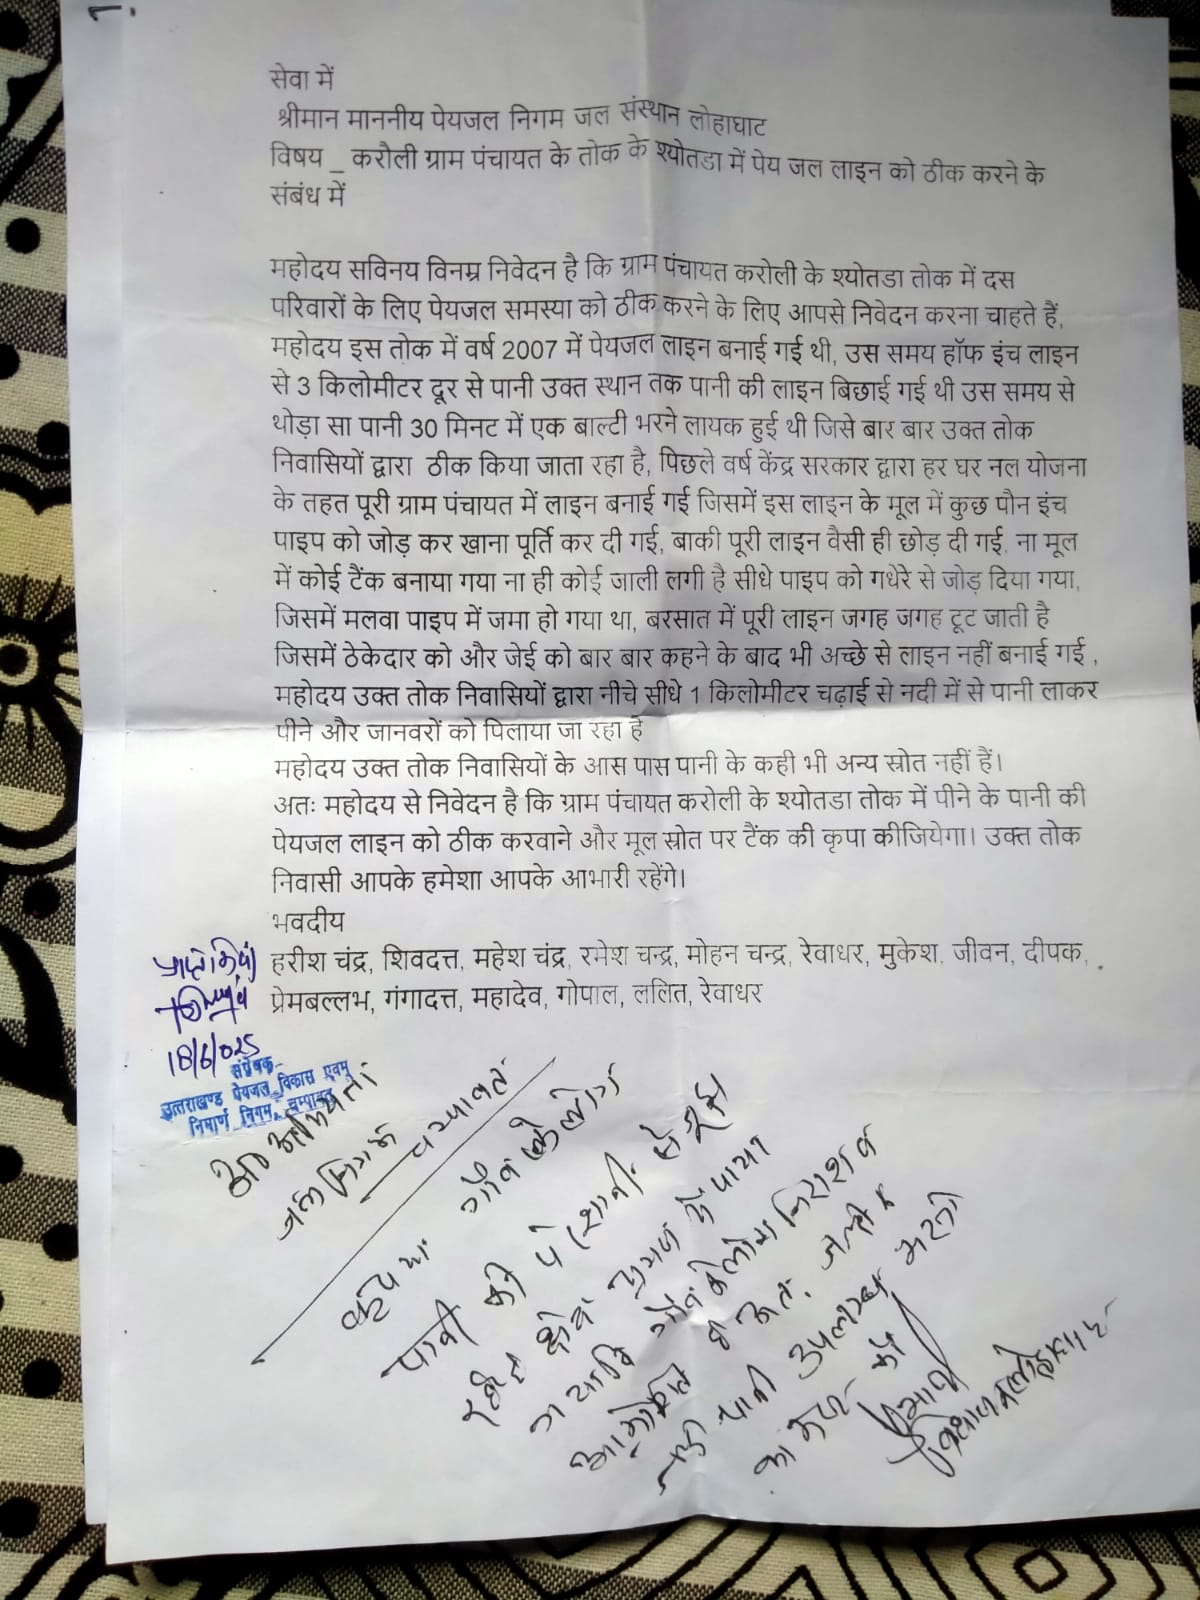 सेवा में
श्रीमान माननीय पेयजल निगम जल संस्थान लोहाघाट
विषय _ करौली ग्राम पंचायत के तोक के श्योतडा में पेय जल लाइन को ठीक करने के
संबंध में
महोदय सविनय विनम्र निवेदन है कि ग्राम पंचायत करोली के श्योतडा तोक में दस
परिवारों के लिए पेयजल समस्या को ठीक करने के लिए आपसे निवेदन करना चाहते हैं,
महोदय इस तोक में वर्ष 2007 में पेयजल लाइन बनाई गई थी, उस समय हॉफ इंच लाइन
से 3 किलोमीटर दूर से पानी उक्त स्थान तक पानी की लाइन बिछाई गई थी उस समय से
थोड़ा सा पानी 30 मिनट में एक बाल्टी भरने लायक हुई थी जिसे बार बार उक्त तोक
निवासियों द्वारा ठीक किया जाता रहा है, पिछले वर्ष केंद्र सरकार द्वारा हर घर नल योजना
के तहत पूरी ग्राम पंचायत में लाइन बनाई गई जिसमें इस लाइन के मूल में कुछ पौन इंच
पाइप को जोड़ कर खाना पूर्ति कर दी गई, बाकी पूरी लाइन वैसी ही छोड़ दी गई, ना मूल
में कोई टैंक बनाया गया ना ही कोई जाली लगी है सीधे पाइप को गधेरे से जोड़ दिया गया,
जिसमें मलवा पाइप में जमा हो गया था, बरसात में पूरी लाइन जगह जगह टूट जाती है
जिसमें ठेकेदार को और जेई को बार बार कहने के बाद भी अच्छे से लाइन नहीं बनाई गई ,
महोदय उक्त तोक निवासियों द्वारा नीचे सीधे 1 किलोमीटर चढ़ाई से नदी में से पानी लाकर
पीने और जानवरों को पिलाया जा रहा हे
महोदय उक्त तोक निवासियों के आस पास पानी के कही भी अन्य स्रोत नहीं हैं।
अतः महोदय से निवेदन है कि ग्राम पंचायत करोली के श्योतडा तोक में पीने के पानी की
पेयजल लाइन को ठीक करवाने और मूल स्रोत पर टैंक की कृपा कीजियेगा। उक्त तोक
निवासी आपके हमेशा आपके आभारी रहेंगे।
भवदीय
हरीश चंद्र, शिवदत्त, महेश चंद्र, रमेश चन्द्र, मोहन चन्द्र, रेवाधर, मुकेश, जीवन, दीपक,
प्रेमबल्लभ, गंगादत्त, महादेव, गोपाल, ललित, रेवाधर
प्राप्त किया
18/6/025
संप्रेषक
उत्तराखण्ड पेयजल विकास एवम्
निर्माण निगम, चम्पावत
जल निगम चम्पावत
कृपया गाँव के लोग
पानी की परेशानी से
क्षेत्र भ्रमण में पाया
गया कि गाँव के लोग निराश व
पानी उपलब्ध